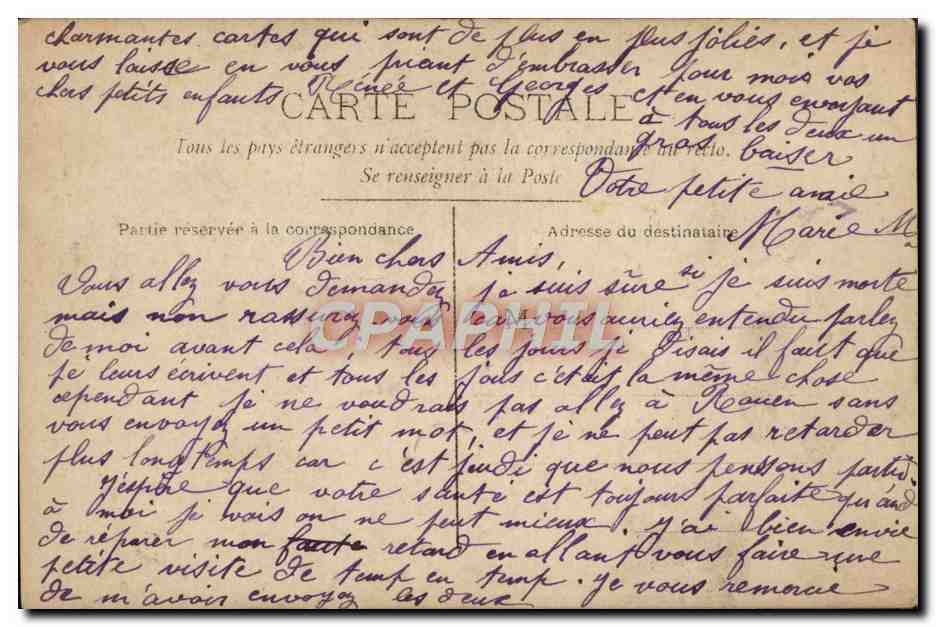 charmantes cartes qui sont de plus en plus jolies, et je
vous laisse en vous priant d'embrasser pour mois vos
chers petits enfants Rénée et Georges et en vous envoyant
à tous les deux un
gros baiser
Votre petite amie
Marie M
CARTE POSTALE
Tous les pays étrangers n'acceptent pas la correspondance au recto.
Se renseigner à la Poste
Partie réservée à la correspondance
Adresse du destinataire
Bien chers Amis,
Vous allez vous demandez si je suis sûre je suis morte
mais non rassurez vous car vous auriez entendu parlez
de moi avant cela tous les jours je disais il faut que
je leurs écrivent et tous les jous c'était la même chose
cependant je ne voudrais pas allez à Rouen sans
vous envoyez un petit mot, et je ne peut pas retarder
plus longtemps car c'est jeudi que nous penssons partir.
J'espère que votre santé est toujours parfaite quand
à moi je vais on ne peut mieux. J'ai bien envie
de réparer mon faute retard en allant vous faire une
petite visite de temp en temp. Je vous remercie
de m'avoir envoyez les deux
CPAPHIL